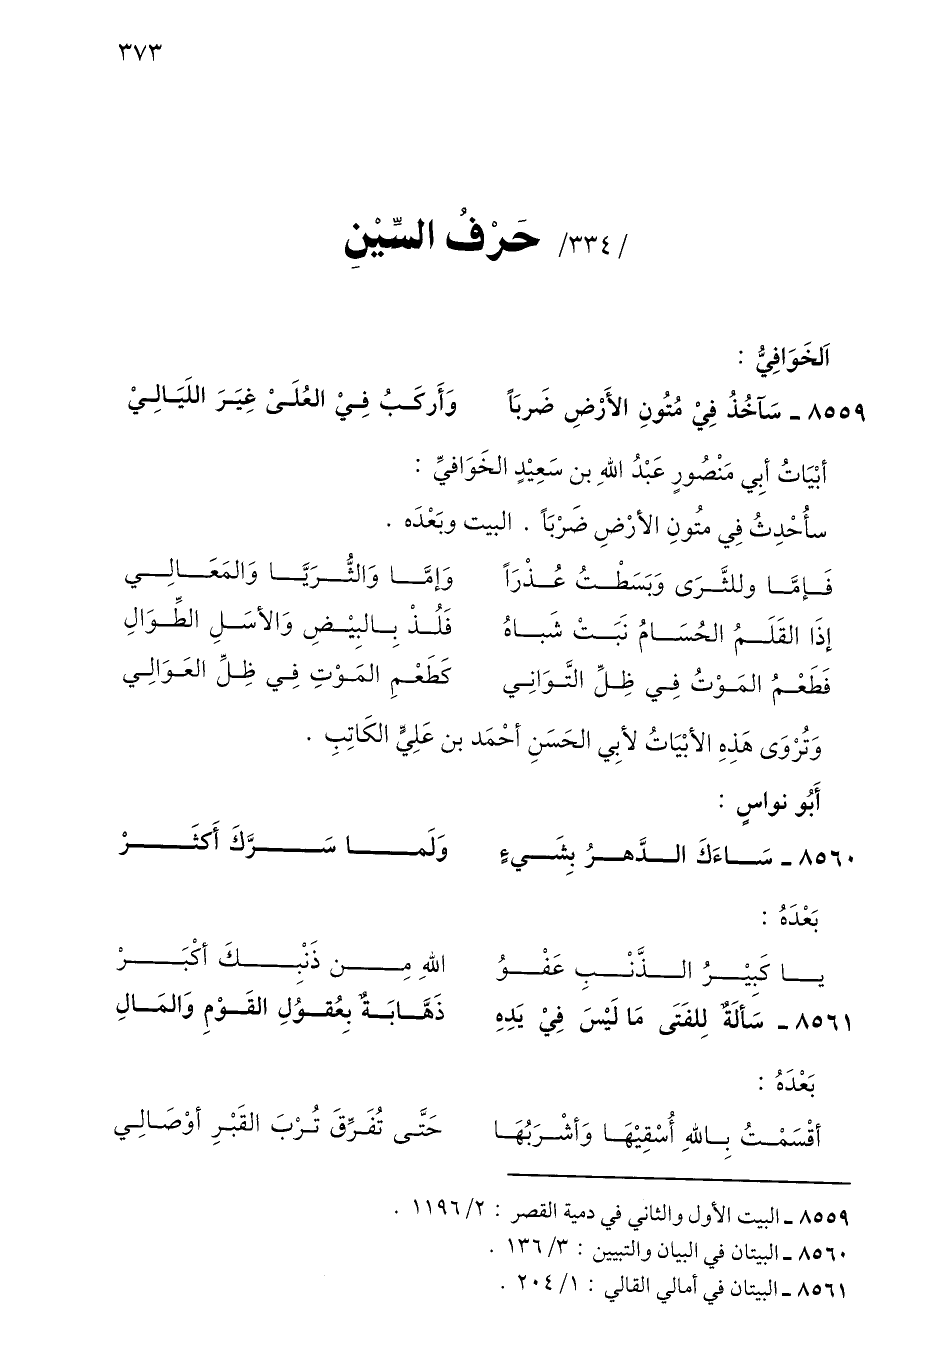 ٣٧٣
/٣٣٤/ حَرْفُ السِّيْنِ
اَلخَوَافِيُّ :
٨٥٥٩ ـ سَآخُذُ فِيْ مُتُونِ الأَرْضِ ضَرباً وَأَركَـبُ فِـيْ العُلَـىْ غِيَـرَ اللَيَـالِـيْ
أبْيَاتُ أبِي مَنْصُورٍ عَبْدُ اللهِ بن سَعِيْدٍ الخَوَافيِّ :
سأُحْدِثُ فِي متُونِ الأرْضِ ضَرْبَاً . البيت وبَعْدَه .
فَـإمَّـا وللثَّرَى وَبَسَطْـتُ عُـذْرَاً وَإمَّـا وَالثُّـرَيَّـا وَالمَعَـالِـي
إذَا القَلَـمُ الحُسَـامُ نَبَـتْ شَبـاهُ فَلُـذْ بِـالبِيْـضِ وَالأسَـلِ الطِّـوَالِ
فَطَعْـمُ المَـوْتُ فِـي ظِلِّ التَّوَانِـي كَطَعْـمِ المَـوْتِ فِـي ظِـلِّ العَوَالِـي
وَتُرْوَى هَذِهِ الأبْيَاتُ لأبي الحَسَنِ أحْمَد بن عَلِيٍّ الكَاتِبِ .
أَبُو نواسٍ :
٨٥٦٠ ـ سَـاءَكَ الـدَّهـرُ بِشَـيءٍ وَلَمـا سَـرَّكَ أَكثَـرْ
بَعْدَهُ :
يـا كَبِيْـرُ الـذَّنْـبِ عَفْـوُ اللهِ مِـن ذَنْبِـكَ أكْبَـرْ
٨٥٦١ ـ سَألَةٌ لِلفَتَى مَا لَيْسَ فِيْ يَدِهِ ذَهَّابَـةٌ بِعُقـوُلِ القَـوْمِ وَالمَـالِ
بَعْدَهُ :
أقْسَمْـتُ بِـاللهِ أُسْقِيْهَـا وَأشْـرَبُهَـا حَتَّـى تُفَـرِّقَ تُـرْبَ القَبْـرِ أوْصَـالِـي
٨٥٥٩ ـ البيت الأول والثاني في دمية القصر : ٢/ ١١٩٦ .
٨٥٦٠ ـ البيتان في البيان والتبيين : ٣/ ١٣٦ .
٨٥٦١ ـ البيتان في أمالي القالي : ١/ ٢٠٤ .